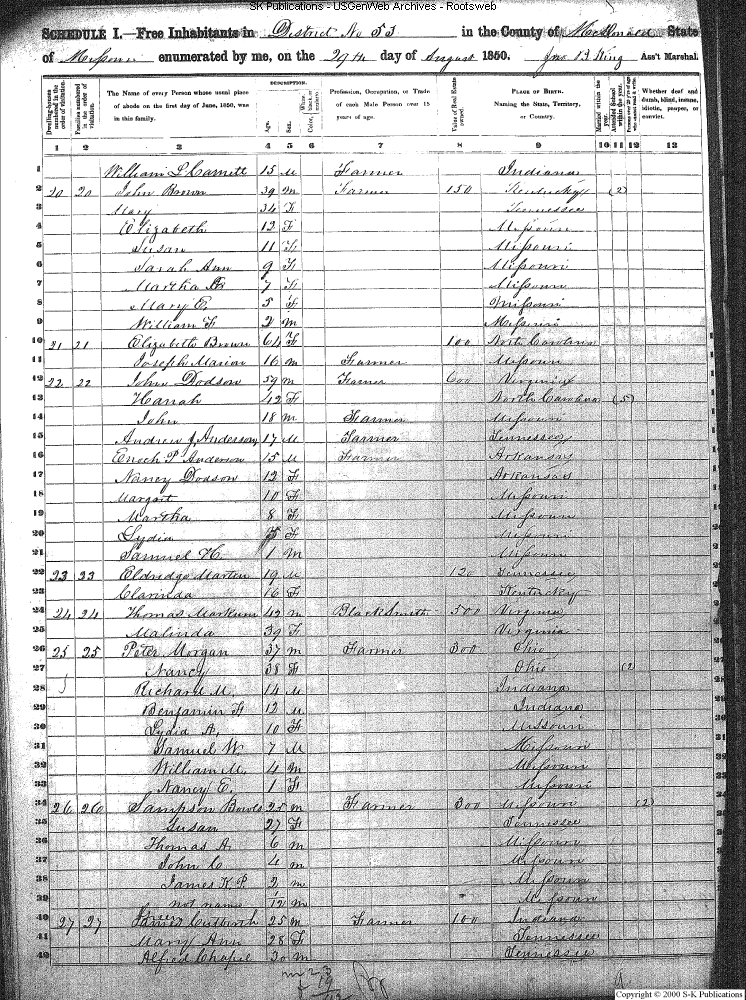 SK Publications - USGenWeb Archives - Rootsweb
SCHEDULE I.—Free Inhabitants in District No 53 in the County of State
of Missouri enumerated by me, on the 29th day of August 1850. Jno B King Ass't Marshal.
Dwelling-houses numbered in the order of visitation.
Families numbered in the order of visitation.
The Name of every Person whose usual place of abode on the first day of June, 1850, was in this family.
DESCRIPTION.
Age.
Sex.
Color, White, black, or mulatto.
Profession, Occupation, or Trade of each Male Person over 15 years of age.
Value of Real Estate owned.
PLACE OF BIRTH.
Naming the State, Territory, or Country.
Married within the year.
Attended School within the year.
Persons over 20 y'rs of age who cannot read & write.
Whether deaf and dumb, blind, insane, idiotic, pauper, or convict.
1 2 3 4 5 6 7 8 9 10 11 12 13
1 William L 15 M Farmer Indiana
2 20 20 John Brown 39 m Farmer 150 Kentucky (2)
3 Mary 34 F Tennessee
4 Elizabeth 12 F Missouri
5 Susan 11 F Missouri
6 Sarah Ann 9 F Missouri
7 Martha 7 F Missouri
8 Mary E. 5 F Missouri
9 William F 2 m Missouri
10 21 21 Elizabeth Brown 64 F 100 North Carolina
11 Joseph Marion 16 m Farmer Missouri
12 22 22 John Dodson 59 m Farmer 600 Virginia
13 Hanah 42 F North Carolina (5)
14 John 18 m Farmer Missouri
15 Andrew J Anderson 17 M Farmer Tennessee
16 Enoch P Anderson 15 M Farmer Arkansas
17 Nancy Dodson 12 F Arkansas
18 Margret 10 F Missouri
19 Martha 8 F Missouri
20 Lydia F Missouri
21 Samuel H. 1 m Missouri
22 23 23 Eldredge Marten 19 M 120 Tennessee
23 Clarinda 16 F Kentucky
24 24 24 Thomas Markum 42 m BlackSmith 500 Virginia
25 Malinda 39 F Virginia
26 25 25 Peter Morgan 37 m Farmer 300 Ohio
27 Nancy 38 F Ohio (2
28 Richard M. 14 M Indiana
29 Benjamin F 12 M Indiana
30 Lydia A, 10 F Missouri
31 Samuel W 7 M Missouri
32 William M. 4 m Missouri
33 Nancy E. 1 F Missouri
34 26 26 Sampson Bowls 25 m Farmer 300 Missouri (2)
35 Susan 27 F Tennessee
36 Thomas A. 6 m Missouri
37 John C 4 m Missouri
38 James K P. 2 m Missouri
39 not name 1/12 m Missouri
40 27 27 James 25 m Farmer 100 Indiana
41 Mary Ann 28 F Tennessee
42 Alfred Chapel 30 m Tennessee
m 23
19
Copyright © 2000 S-K Publications